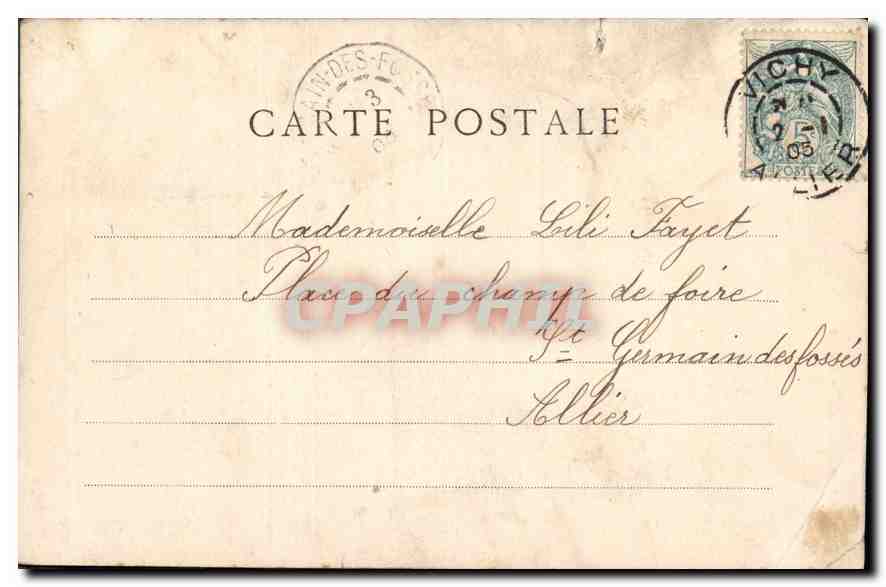 AIN-DES-FOSSÉS
3
05
VICHY
2 -1
05
ALLIER
5
POSTES
CARTE POSTALE
Mademoiselle Lili Fayet
Place du champ de foire
St Germain des fossés
Allier
CPAPHIL